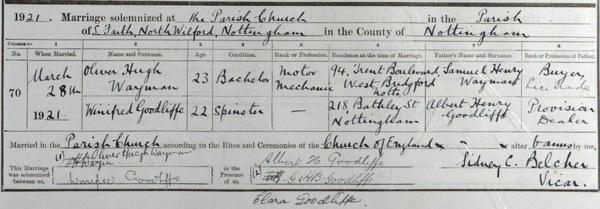 1921. Marriage solemnized at the Parish Church in the Parish
of S. Faith, North Wilford, Nottingham in the County of Nottingham
Columns:— 1 2 3 4 5 6 7 8
No. When Married. Name and Surname. Age. Condition. Rank or Profession. Residence at the time of Marriage. Father's Name and Surname. Rank or Profession of Father.
70 March 28th 1921 Oliver Hugh Wayman 23 Bachelor Motor Mechanic 94, Trent Boulevard West Bridgford Notts. Samuel Henry Wayman Buyer, Lace Trade
Winifred Goodliffe 22 Spinster — 218, Bathley St Nottingham Albert Henry Goodliffe Provision Dealer
Married in the Parish Church according to the Rites and Ceremonies of the Church of England after banns by me,
This Marriage was solemnized between us, (1) Oliver Hugh Wayman
Winifred Goodliffe
in the Presence of us, Albert H Goodliffe
(2) Goodliffe
Clara Goodliffe.
Sidney C. Belcher
Vicar.